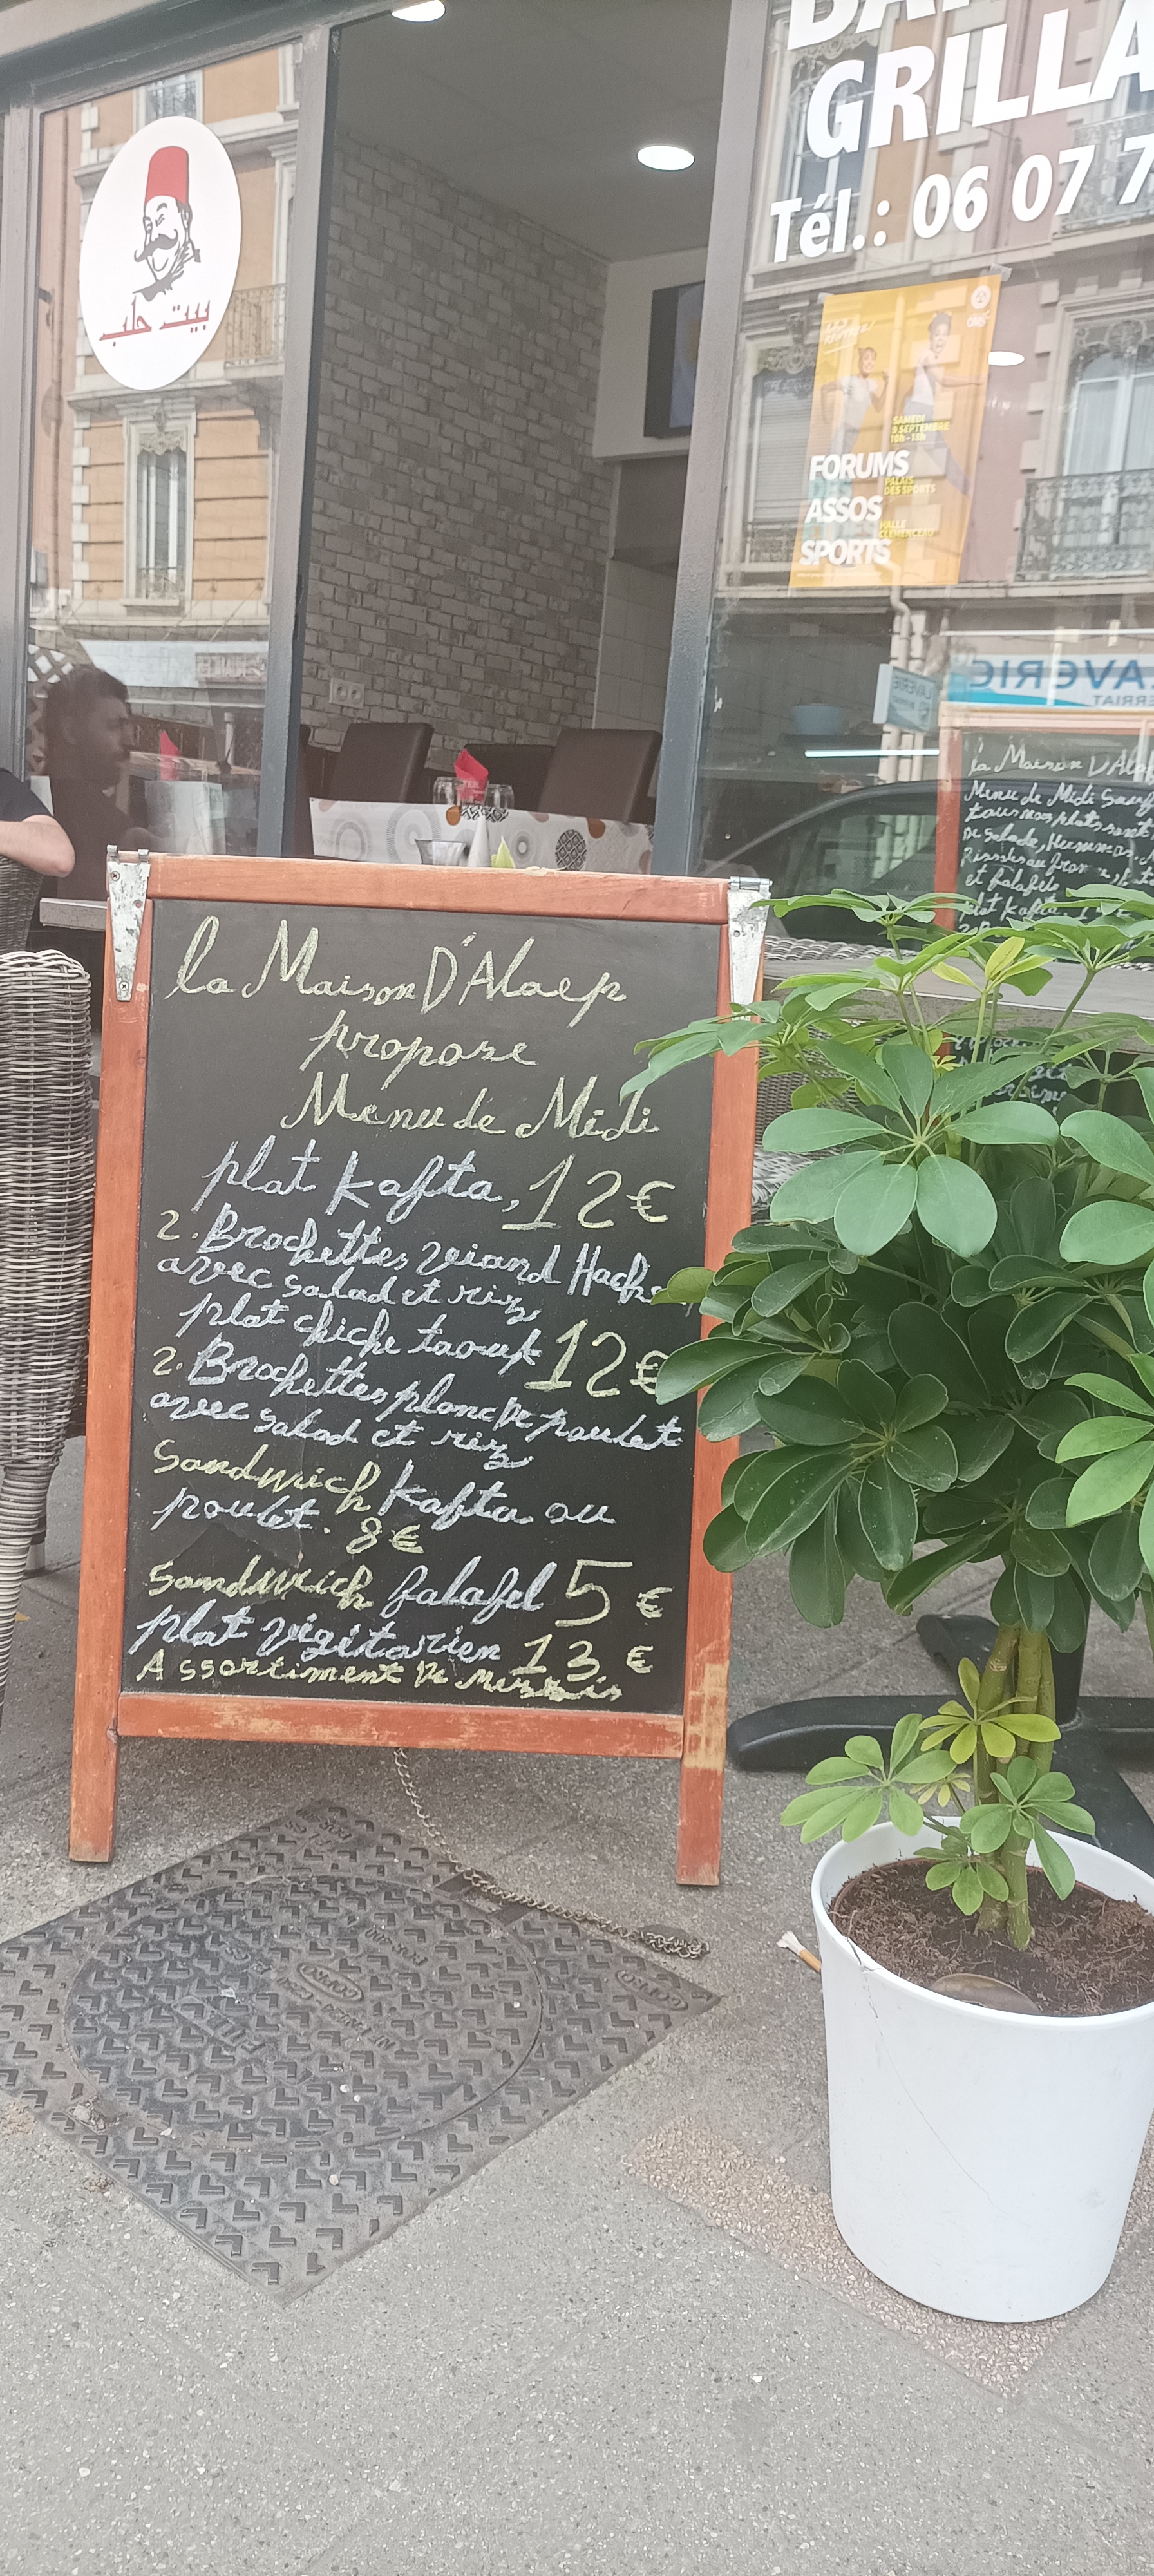 GRILLA
Tél.: 06 07 7
بيت حلب
SAMEDI
9 SEPTEMBRE
10h - 18h
FORUMS
PALAIS
DES SPORTS
ASSOS
HALLE
CLEMENCEAU
SPORTS
LAVERIE
la Maison D'Alaep
Menu de Midi
et falafel
plat Kafta
la Maison D'Alaep
propose
Menu de Midi
plat Kafta, 12€
2. Brochettes viand Hach
avec salad et riz
plat chiche taouk 12€
2. Brochettes planc De poulet
avec salad et riz
Sandwich Kafta ou
poulet. 8€
Sandwich falafel 5 €
plat végitarien 13 €
Assortiment De